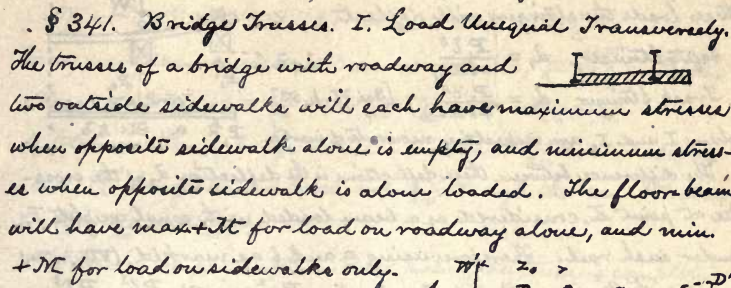 . § 341. Bridge Trusses. I. Load Unequal Transversely.
The trusses of a bridge with roadway and
two outside sidewalks will each have maximum stresses
when opposite sidewalk alone is empty, and minimum stress-
es when opposite sidewalk is alone loaded. The floor-beam
will have max + M for load on roadway alone, and min.
+ M for load on sidewalks only.